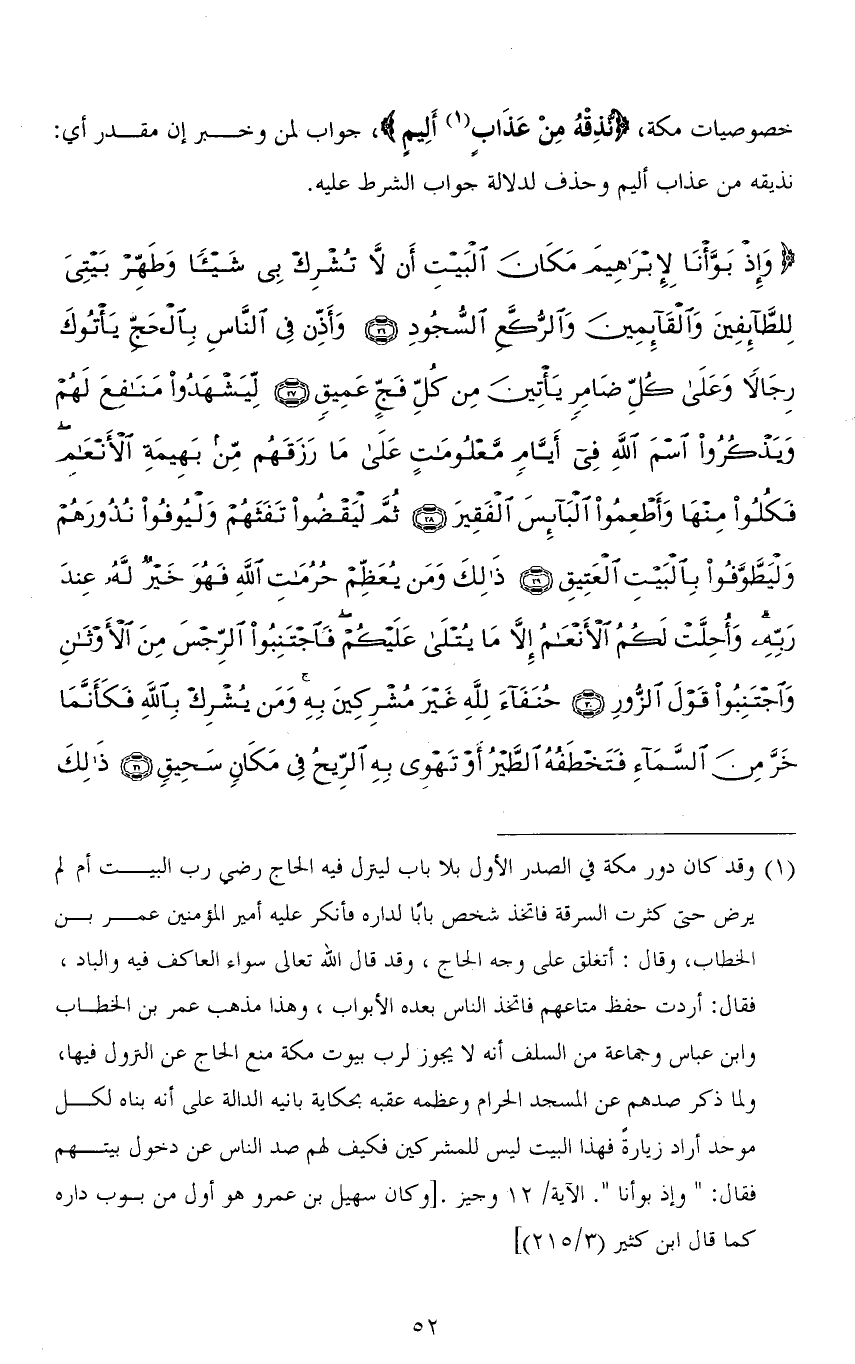 خصوصيات مكة، ﴿نُذِقْهُ مِنْ عَذَابٍ(١) أَلِيمٍ﴾، جواب لمن وخبر إن مقدر أي:
نذيقه من عذاب أليم وحذف لدلالة جواب الشرط عليه.
﴿ وَإِذْ بَوَّأْنَا لِإِبْرَٰهِيمَ مَكَانَ ٱلْبَيْتِ أَن لَّا تُشْرِكْ بِى شَيْـًٔا وَطَهِّرْ بَيْتِىَ
لِلطَّآئِفِينَ وَٱلْقَآئِمِينَ وَٱلرُّكَّعِ ٱلسُّجُودِ ۝٢٦ وَأَذِّن فِى ٱلنَّاسِ بِٱلْحَجِّ يَأْتُوكَ
رِجَالًا وَعَلَىٰ كُلِّ ضَامِرٍ يَأْتِينَ مِن كُلِّ فَجٍّ عَمِيقٍ ۝٢٧ لِّيَشْهَدُوا۟ مَنَـٰفِعَ لَهُمْ
وَيَذْكُرُوا۟ ٱسْمَ ٱللَّهِ فِىٓ أَيَّامٍ مَّعْلُومَـٰتٍ عَلَىٰ مَا رَزَقَهُم مِّنۢ بَهِيمَةِ ٱلْأَنْعَـٰمِ ۖ
فَكُلُوا۟ مِنْهَا وَأَطْعِمُوا۟ ٱلْبَآئِسَ ٱلْفَقِيرَ ۝٢٨ ثُمَّ لْيَقْضُوا۟ تَفَثَهُمْ وَلْيُوفُوا۟ نُذُورَهُمْ
وَلْيَطَّوَّفُوا۟ بِٱلْبَيْتِ ٱلْعَتِيقِ ۝٢٩ ذَٰلِكَ وَمَن يُعَظِّمْ حُرُمَـٰتِ ٱللَّهِ فَهُوَ خَيْرٌ لَّهُۥ عِندَ
رَبِّهِۦ ۗ وَأُحِلَّتْ لَكُمُ ٱلْأَنْعَـٰمُ إِلَّا مَا يُتْلَىٰ عَلَيْكُمْ ۖ فَٱجْتَنِبُوا۟ ٱلرِّجْسَ مِنَ ٱلْأَوْثَـٰنِ
وَٱجْتَنِبُوا۟ قَوْلَ ٱلزُّورِ ۝٣٠ حُنَفَآءَ لِلَّهِ غَيْرَ مُشْرِكِينَ بِهِۦ ۚ وَمَن يُشْرِكْ بِٱللَّهِ فَكَأَنَّمَا
خَرَّ مِنَ ٱلسَّمَآءِ فَتَخْطَفُهُ ٱلطَّيْرُ أَوْ تَهْوِى بِهِ ٱلرِّيحُ فِى مَكَانٍ سَحِيقٍ ۝٣١ ذَٰلِكَ
(١) وقد كان دور مكة في الصدر الأول بلا باب لينزل فيه الحاج رضي رب البيت أم لم
يرض حتى كثرت السرقة فاتخذ شخص بابًا لداره فأنكر عليه أمير المؤمنين عمر بن
الخطاب، وقال : أتغلق على وجه الحاج ، وقد قال الله تعالى سواء العاكف فيه والباد ،
فقال: أردت حفظ متاعهم فاتخذ الناس بعده الأبواب ، وهذا مذهب عمر بن الخطاب
وابن عباس وجماعة من السلف أنه لا يجوز لرب بيوت مكة منع الحاج عن النزول فيها،
ولما ذكر صدهم عن المسجد الحرام وعظمه عقبه بحكاية بانيه الدالة على أنه بناه لكل
موحد أراد زيارةً فهذا البيت ليس للمشركين فكيف لهم صد الناس عن دخول بيتهم
فقال: " وإذ بوأنا ". الآية/ ١٢ وجيز .[وكان سهيل بن عمرو هو أول من بوب داره
كما قال ابن كثير (٢١٥/٣)]
٥٢